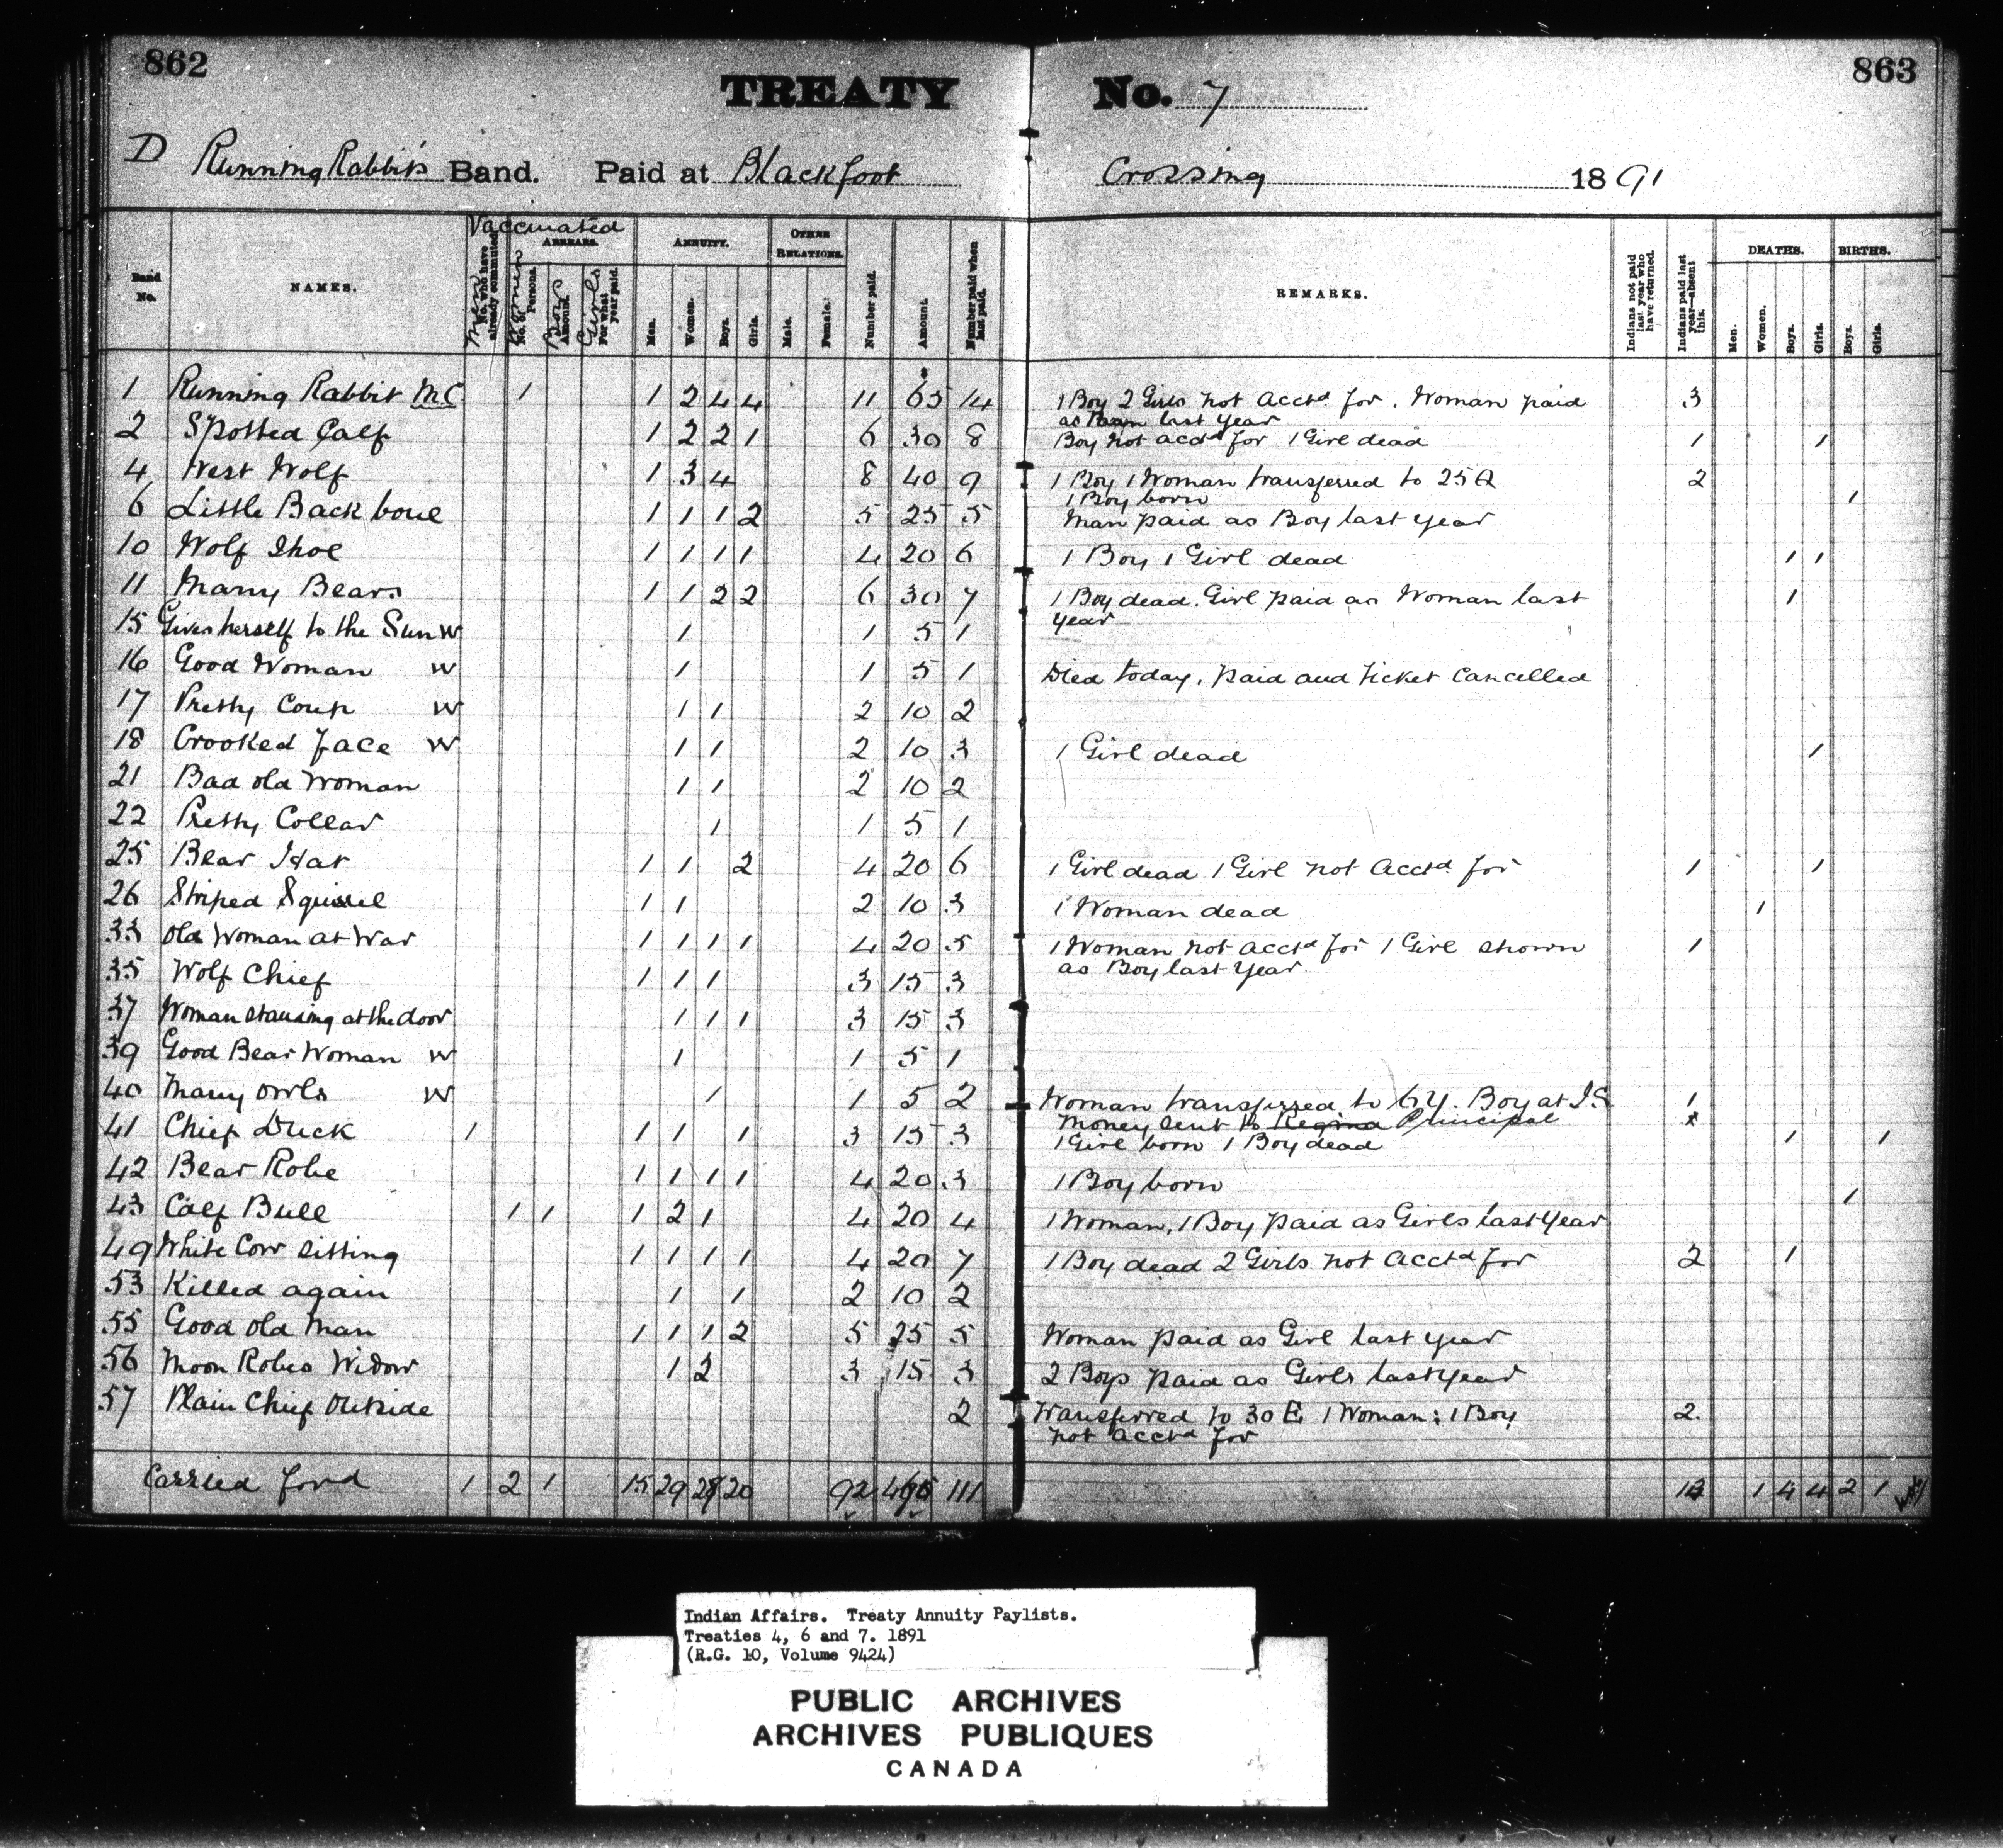 862
863
TREATY No. 7
D Running Rabbit's Band. Paid at Blackfoot Crossing 1891
Vaccinated
Men Women Boys Girls
Band No. NAMES. No. who have already commuted. ARREARS. No. of Persons. Amount. For what year paid. ANNUITY. Men. Women. Boys. Girls. OTHER RELATIONS. Male. Female. Number paid. Amount. Number paid when last paid. REMARKS. Indians not paid last year who have returned. Indians paid last year—absent this. DEATHS. Men. Women. Boys. Girls. BIRTHS. Boys. Girls.
1 Running Rabbit M.C. 1 1 2 4 4 11 65 14 1 Boy 2 Girls not Acctd for. Woman paid 3
as last year
2 Spotted Calf 1 2 2 1 6 30 8 Boy not acctd for 1 Girl dead 1 1
4 West Wolf 1 3 4 8 40 9 1 Boy 1 Woman transferred to 25 A 2
1 Boy born 1
6 Little Back bone 1 1 1 2 5 25 5 Man paid as Boy last year
10 Wolf Shoe 1 1 1 1 4 20 6 1 Boy 1 Girl dead 1 1
11 Many Bears 1 1 2 2 6 30 7 1 Boy dead. Girl paid as Woman last 1
year
15 Gives herself to the Sun W 1 1 5 1
16 Good Woman W 1 1 5 1 Died today, paid and ticket cancelled
17 Pretty Coup W 1 1 2 10 2
18 Crooked face W 1 1 2 10 3 1 Girl dead 1
21 Bad old Woman 1 1 2 10 2
22 Pretty Collar 1 1 5 1
25 Bear Hat 1 1 2 4 20 6 1 Girl dead 1 Girl not Acctd for 1 1
26 Striped Squirrel 1 1 2 10 3 1 Woman dead 1
33 Old Woman at War 1 1 1 1 4 20 5 1 Woman not acctd for 1 Girl shown 1
as Boy last year.
35 Wolf Chief 1 1 1 3 15 3
37 Woman standing at the door 1 1 1 3 15 3
39 Good Bear Woman W 1 1 5 1
40 Many Owls W 1 1 5 2 Woman transferred to 6 Y. Boy at I.S. 1
Money sent to Regina Principal
41 Chief Duck 1 1 1 1 3 15 3 1 Girl born 1 Boy dead 1 1
42 Bear Robe 1 1 1 1 4 20 3 1 Boy born 1
43 Calf Bull 1 1 1 2 1 4 20 4 1 Woman, 1 Boy paid as Girls last year
49 White Cow sitting 1 1 1 1 4 20 7 1 Boy dead 2 Girls not Acctd for 2 1
53 Killed again 1 1 2 10 2
55 Good Old Man 1 1 1 2 5 25 5 Woman paid as Girl last year
56 Moon Robes Widow 1 2 3 15 3 2 Boys paid as Girls last year
57 Plain Chief Outside 2 Transferred to 30 E 1 Woman; 1 Boy 2
not acctd for
Carried ford 1 2 1 15 29 28 20 92 111 1 4 4 2 1
Indian Affairs. Treaty Annuity Paylists.
Treaties 4, 6 and 7. 1891
(R.G. 10, Volume 9424)
PUBLIC ARCHIVES
ARCHIVES PUBLIQUES
CANADA